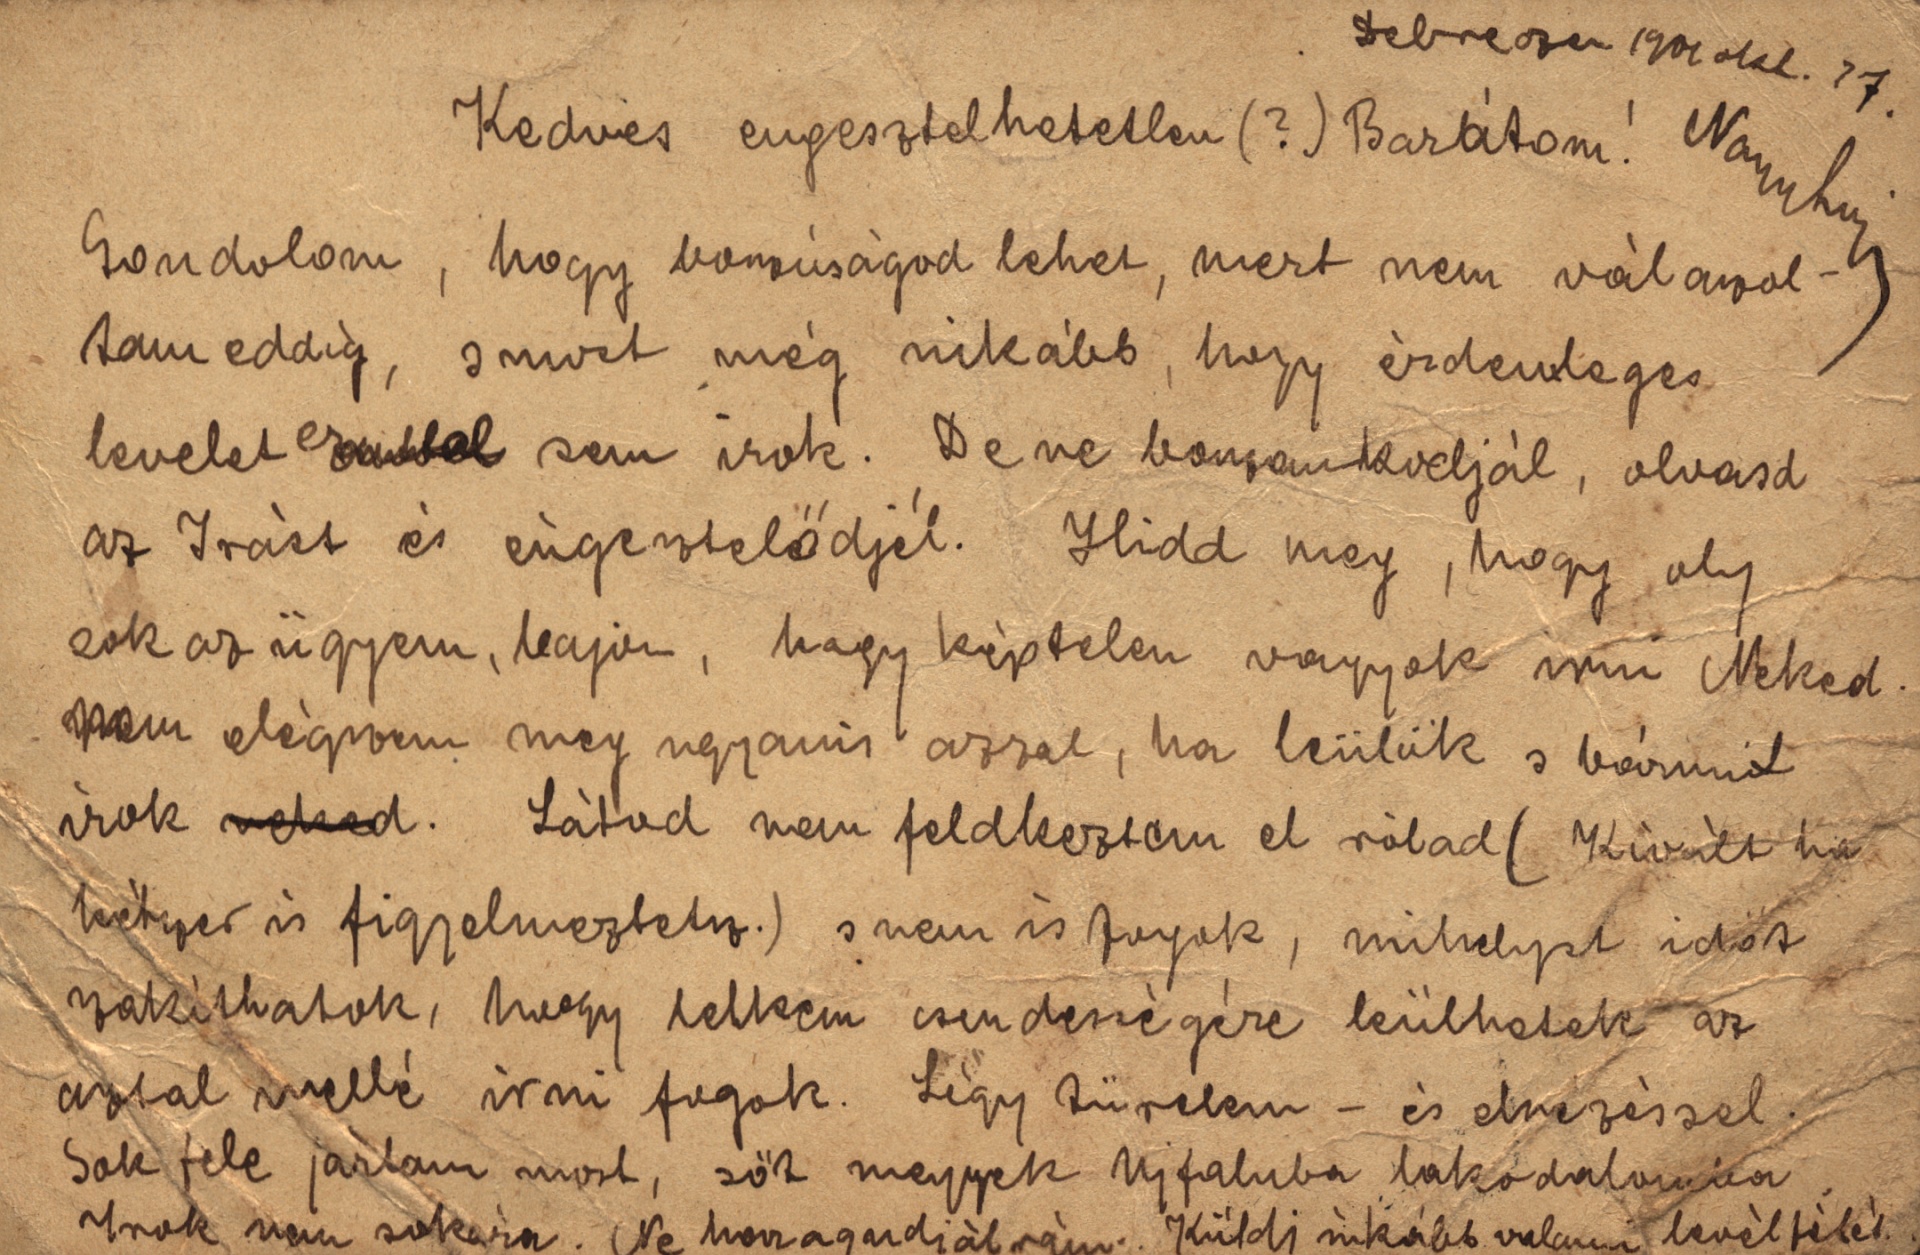 Debreczen 1901 okt. 27.
Kedves engesztelhetetlen (?) Barátom!
Gondolom, hogy bonzúságod lehet, mert nem válaszol-
tam eddig, s most még inkább, hogy érdemleges
levelet sem irok. De ne bonzankodjál, olvasd
az Irást és engesztelődjél. Hidd meg, hogy oly
sok az ügyem, bajom, hogy képtelen vagyok irni Neked.
Nem elégszem meg ugyanis azzal, ha leülök s bármit
irok neked. Látod nem feledkeztem el rólad (Kivált ha
kétszer is figyelmeztetsz.) s nem is fogok, mihelyst időt
szakíthatok, hogy lelkem csendességére leülhetek az
asztal mellé irni fogok. Légy türelem – és elnézéssel.
Sok fele jártam most, sőt megyek Ujfaluba lakodalomba
Irok nem sokára. Ne haragudjál rám. Küldj inkább valami levélfélét.